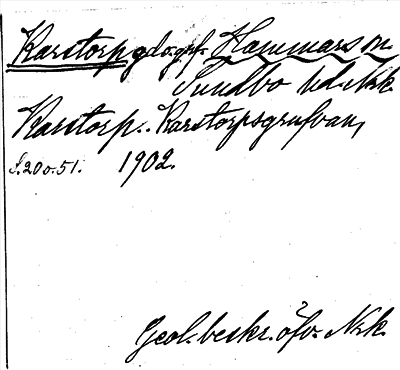 Karstorp gd o. grf. Hammars sn
Sundbo hd. Nrk.
Karstorp. Karstorpsgrufvan,
S. 20 o. 51. 1902.
Geol. beskr. öfv. Nrk.